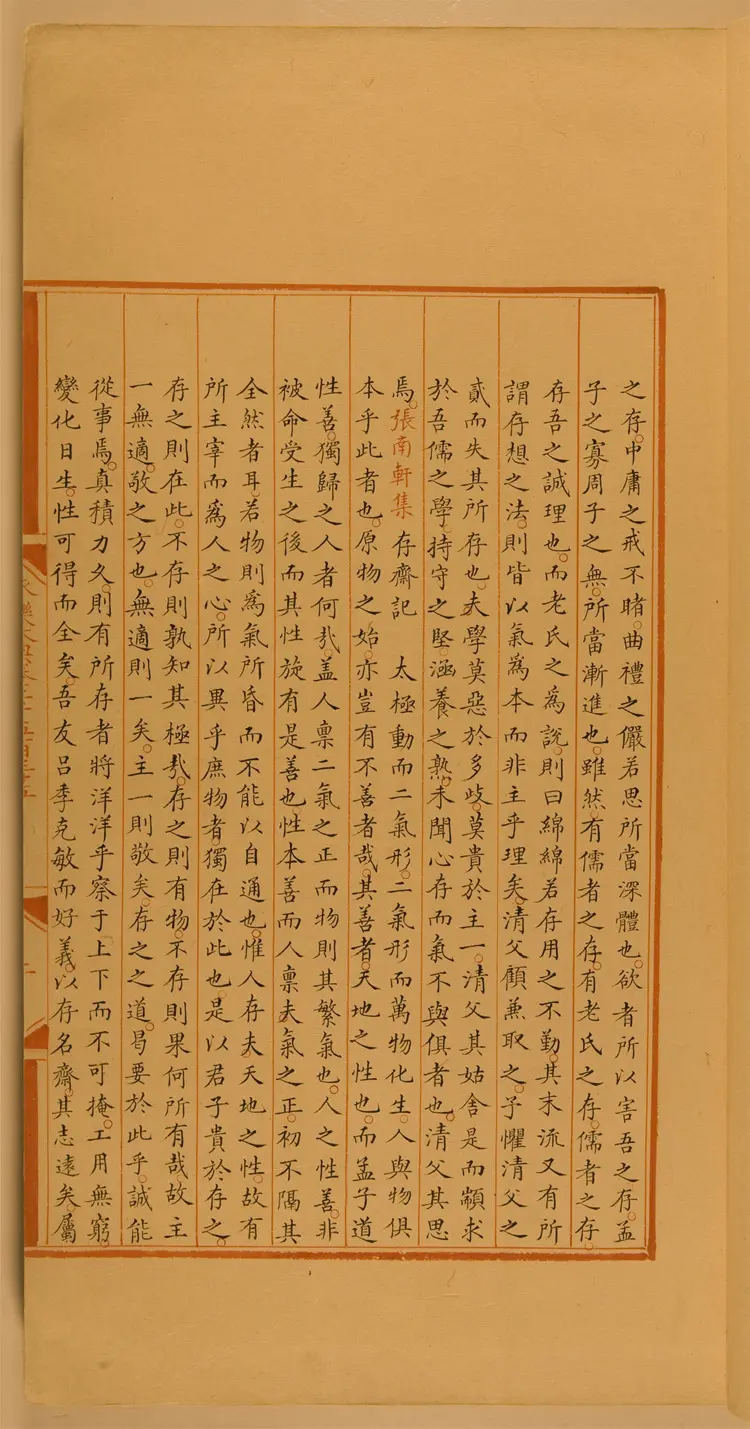 之存。中庸之戒不睹。曲禮之儼若思所當深體也。欲者所以害吾之存。孟
子之寡周子之無。所當漸進也。雖然。有儒者之存。有老氏之存。儒者之存。
存吾之誠理也。而老氏之為說。則曰綿綿若存用之不勤。其末流又有所
謂存想之法。則皆以氣為本而非主乎理矣。清父顧兼取之。予懼清父之
貳而失其所存也。夫學莫惡於多歧。莫貴於主一。清父其姑舍是而顓求
於吾儒之學。持守之堅。涵養之熟。未聞心存而氣不與俱者也。清父其思
焉。張南軒集 存齋記 太極動而二氣形。二氣形而萬物化生。人與物俱
本乎此者也。原物之始。亦豈有不善者哉。其善者。天地之性也。而孟子道
性善。獨歸之人者何㢤。盖人禀二氣之正而物則其繁氣也。人之性善。非
被命受生之後而其性旋有是善也。性本善而人禀夫氣之正。初不隔其
全然者耳。若物則為氣所昏而不能以自通也。惟人存夫天地之性。故有
所主宰而為人之心。所以異乎庶物者。獨在於此也。是以君子貴於存之。
存之則在此。不存則孰知其極㢤。存之則有物。不存則果何所有哉故主
一無適。敬之方也。無適則一矣。主一則敬矣。存之之道。曷要於此乎。誠能
從事焉。真積力久。則有所存者將洋洋乎察于上下而不可掩。工用無窮。
變化日生。性可得而全矣。吾友吕季克敏而好義。以存名齋。其志遠矣。屬